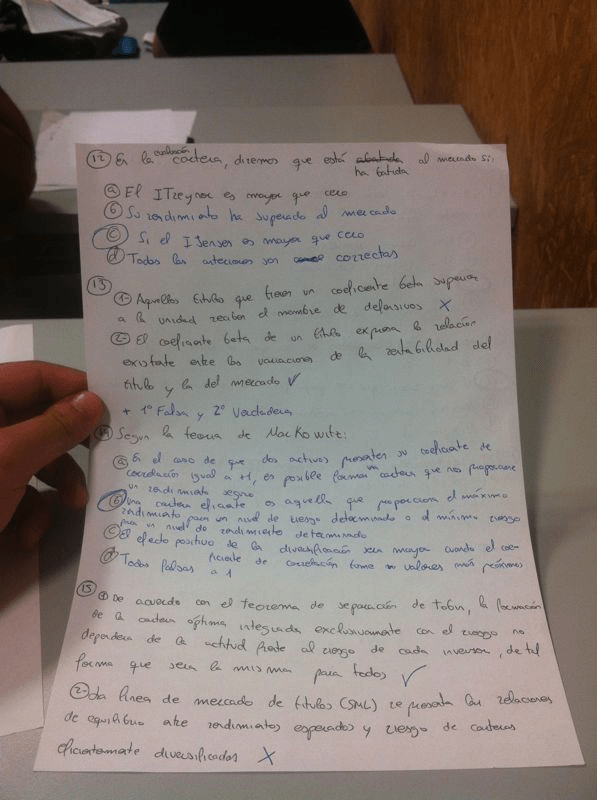 12 En la evaluación cartera, diremos que está abatida al mercado si:
ha batida
a El ITreynor es mayor que cero
b Su rendimiento ha superado al mercado
c Si el IJensen es mayor que cero
d Todas las anteriores son correctas
13 1- Aquellos títulos que tienen un coeficiente beta superior
a la unidad reciben el nombre de defensivos X
2- El coeficiente beta de un título expresa la relación
existente entre las variaciones de la rentabilidad del
título y la del mercado ✓
+ 1º Falsa y 2º Verdadera
14 Segun la teoria de MacKowitz:
a En el caso de que dos activos presenten su coeficiente de
correlación igual a +1, es posible formar un cartera que nos proporcione
un rendimiento seguro
b Una cartera eficiente es aquella que proporciona el máximo
rendimiento para un nivel de riesgo determinado o el mínimo riesgo
para un nivel de rendimiento determinado
c El efecto positivo de la diversificación sera mayor cuando el coe-
ficiente de correlación tome valores más próximos
d Todas falsas a 1
15 1 De acuerdo con el teorema de separación de Tobin, la formación
de la cartera óptima integrada exclusivamente con el riesgo no
dependera de la actitud frente al riesgo de cada inversor, de tal
forma que sera la misma para todos ✓
2- La línea de mercado de títulos (SML) representa las relaciones
de equilibrio entre rendimientos esperados y riesgo de carteras
eficientemente diversificadas X